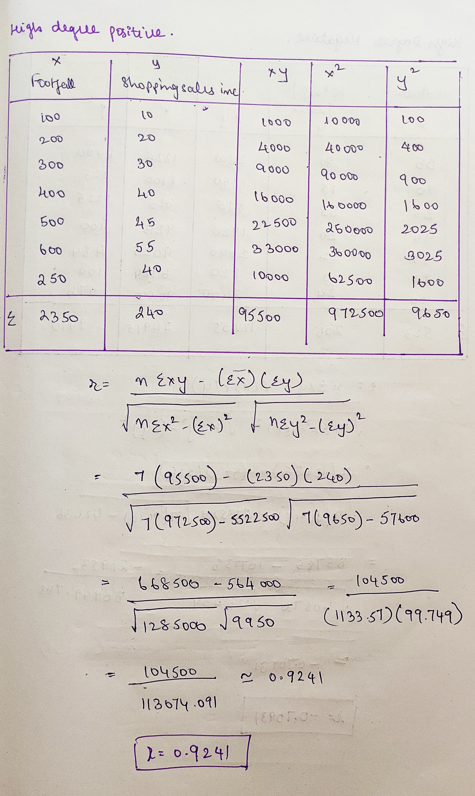 High degree positive.
x y xy x² y²
Footfall Shopping sales inc
100 10 1000 10000 100
200 20 4000 40000 400
300 30 9000 90000 900
400 40 16000 160000 1600
500 45 22500 250000 2025
600 55 33000 360000 3025
250 40 10000 62500 1600
Σ 2350 240 95500 972500 9650
r = n Σxy - (Σx)(Σy)
√nΣx² - (Σx)² √nΣy² - (Σy)²
= 7(95500) - (2350)(240)
√7(972500) - 5522500 √7(9650) - 57600
= 668500 - 564000 = 104500
√1285000 √9950 (1133.57)(99.749)
= 104500 ≃ 0.9241
113074.091
r = 0.9241